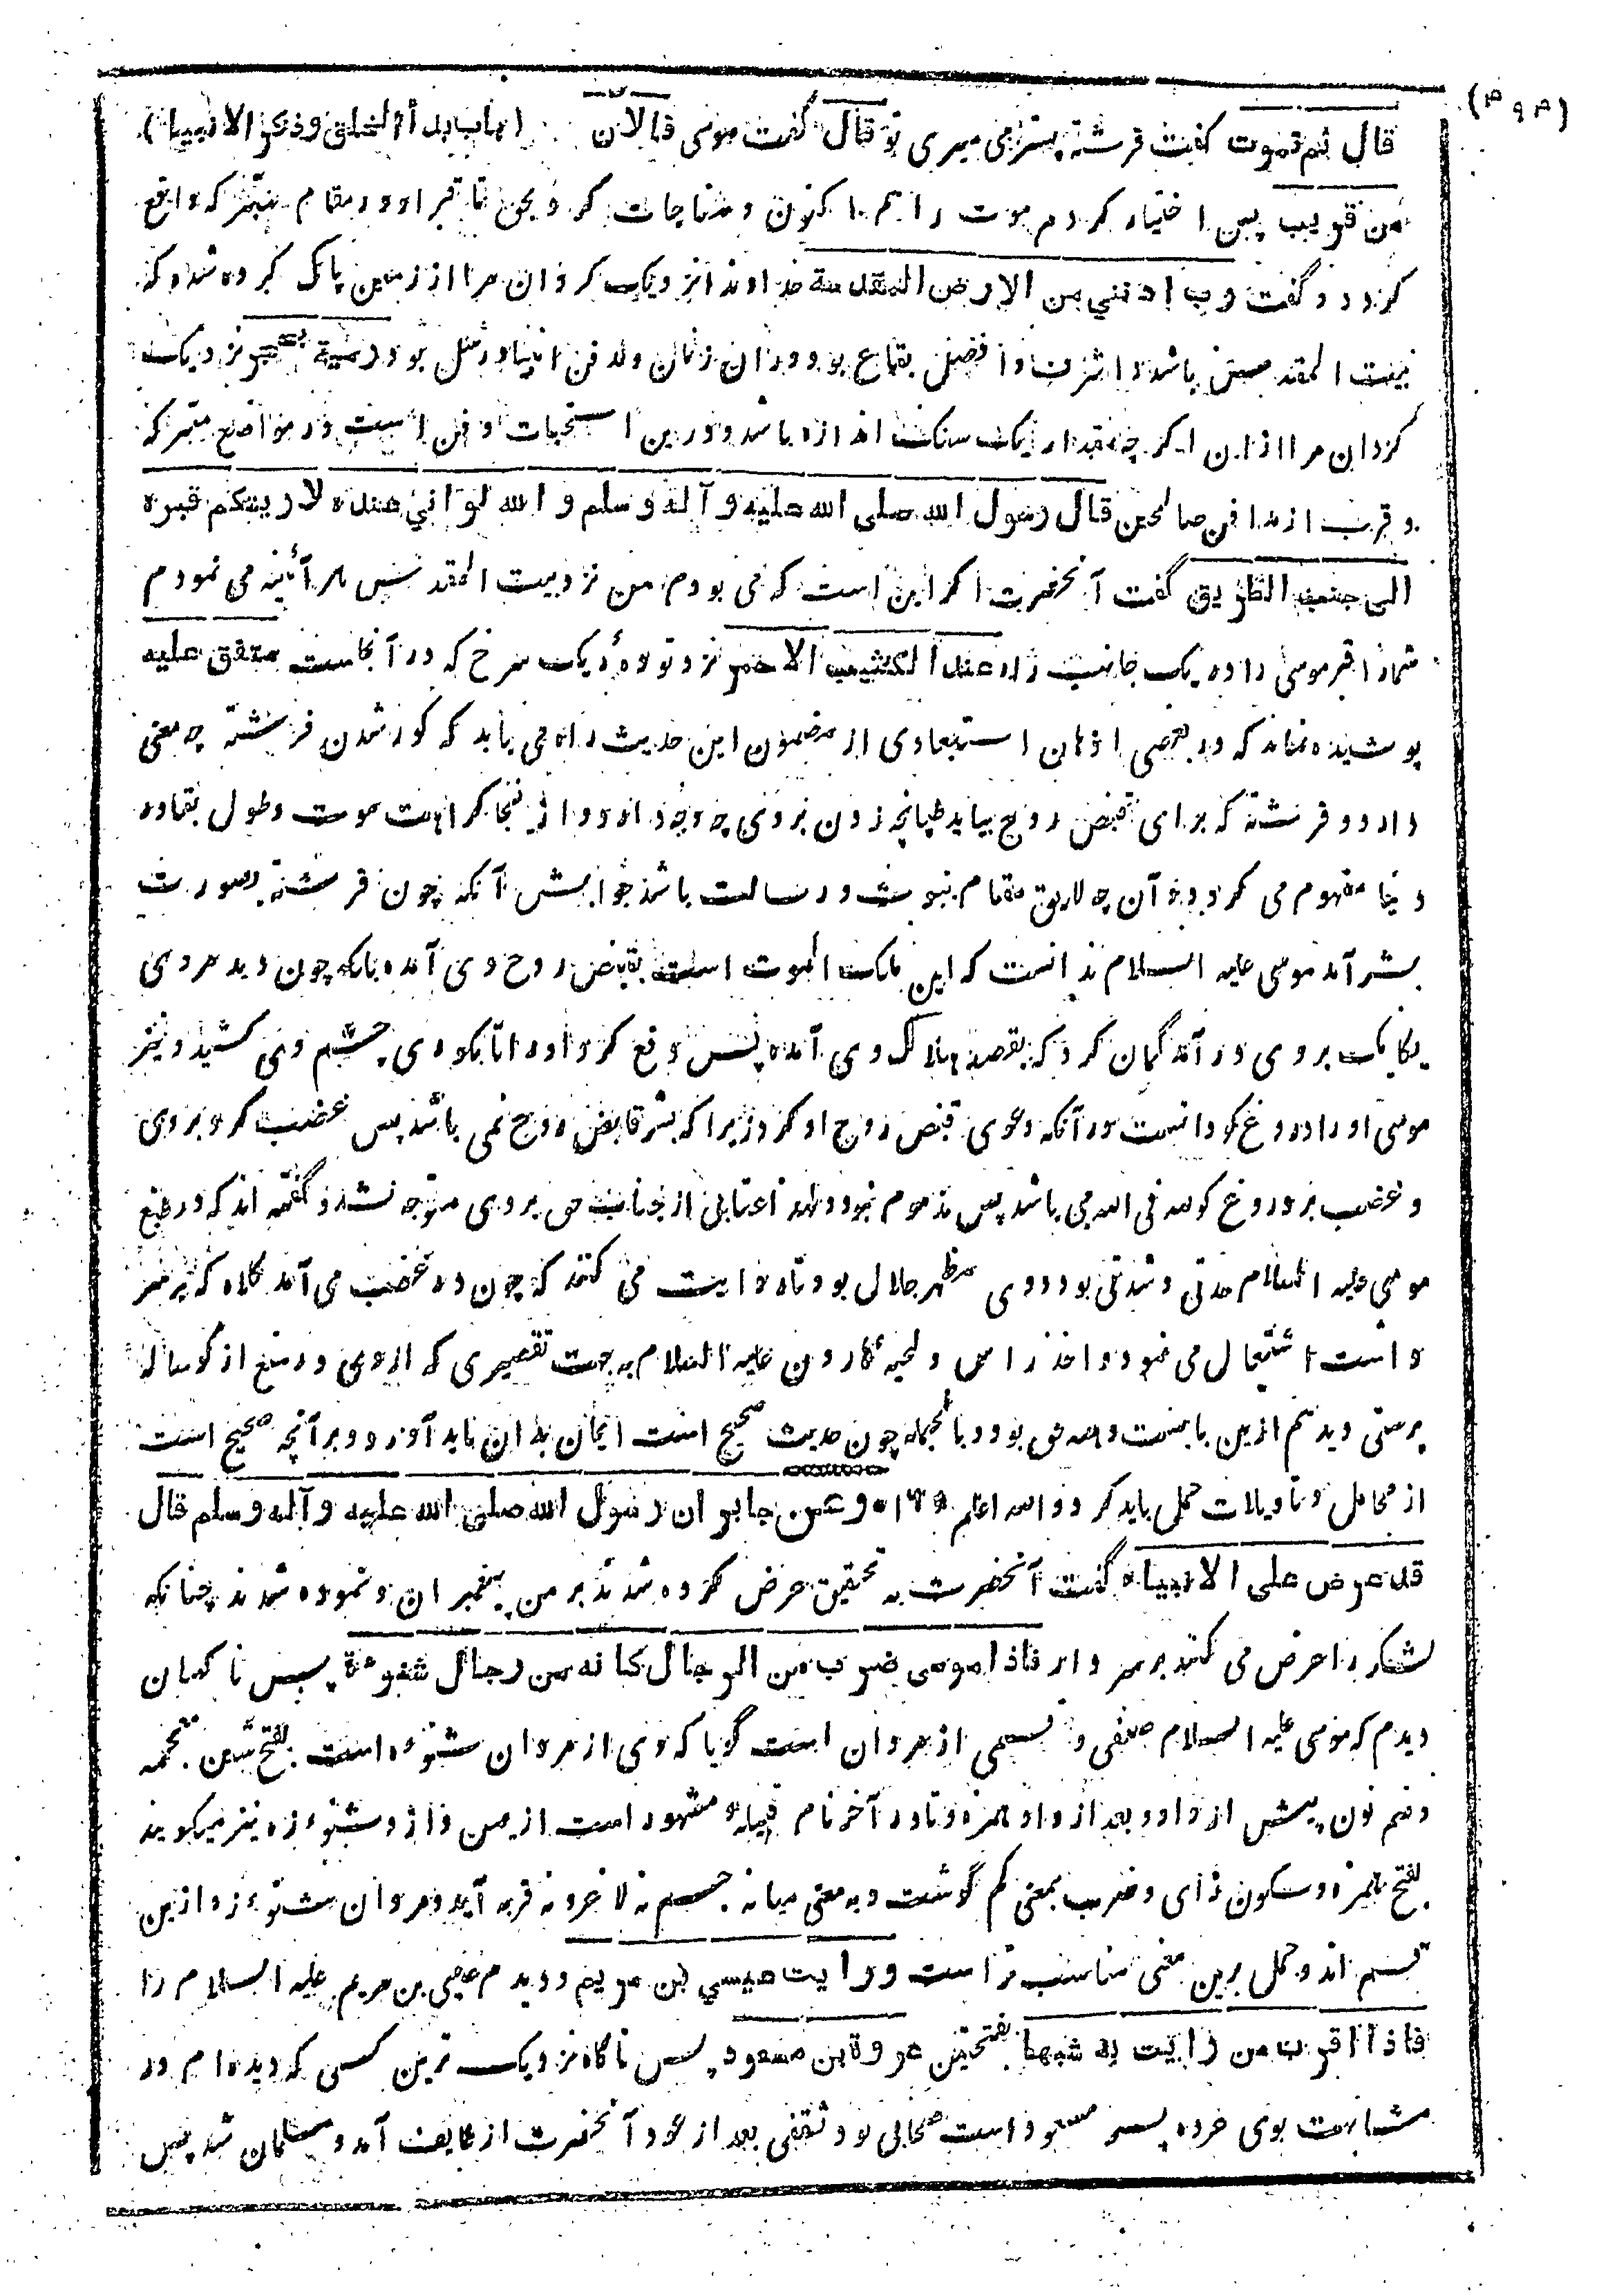 (۴۹۳)
قال ثم تموت گفت فرشته پستر می میری تو قال گفت موسی فالان (باب بدأ الخلق وذكر الانبياء)
من قريب پس اختیار کردم موت را هم اکنون و مناجات کرد بحق تا قبر او در مقام متبرکه واقع
گردد و گفت رب ادنني من الارض المقدسة خداوندا نزدیک گردان مرا از زمین پاک کرده شده که
بیت المقدس باشد و اشرف و افضل بقاع بود در آن زمان و مدفن انبیا و رسل بود رمية بحجر نزدیک
گردان مرا ازان اگر چه مقدار یک سنگ انداز باشد و درین استحباب دفن است در مواضع متبرکه
و قرب از مدافن صالحین قال رسول الله صلى الله عليه وآله وسلم و الله لو اني عنده لاريتكم قبره
الى جنب الطريق گفت آنحضرت اگر این است که می بودم من نزد بیت المقدس هر آئینه می نمودم
شما را قبر موسی را در یک جانب راه عند الكثيب الاحمر نزد توده ریگ سرخ که در آنجاست متفق عليه
پوشیده نماند که در بعضی اذهان استبعادی از مضمون این حدیث راه می یابد که کور شدن فرشته چه معنی
دارد و فرشته که برای قبض روح بیاید طپانچه زدن بروی چه وجه دارد و از ینجا کراهت موت و طول بقا در
دنیا مفهوم می گردد و آن چه لایق مقام نبوت و رسالت باشد جوابش آنکه چون فرشته بصورت
بشر آمد موسی علیه السلام ندانست که این ملک الموت است بقبض روح وی آمده بلکه چون دید مردی
یکایک بروی در آمد گمان کرد که بقصد هلاک وی آمده پس دفع کرد او را تا بکوری چشم وی کشید و نیز
موسی او را دروغ گو دانست در آنکه دعوی قبض روح او کرد زیرا که بشر قابض روح نمی باشد پس غضب کرد بروی
و غضب بر دروغ گو لله فی الله می باشد پس مذموم نبود و لهذا عتابی از جناب حق بروی متوجه نشد و گفته اند که در طبع
موسی علیه السلام حدتی و شدتی بود و وی مظهر جلال بود تا روایت می کنند که چون در غضب می آمد کلاه که بر سر
داشت اشتعال می نمود و اخذ راس و لحیه هارون علیه السلام بجهت تقصیری که از وی در منع از گوساله
پرستی دید هم ازین باب است و لله حق بود و بالجمله چون حدیث صحیح است ایمان بدان باید آورد و بر آنچه صحیح است
از محامل و تاویلات حمل باید کرد و الله اعلم وعن جابر ان رسول الله صلى الله عليه وآله وسلم قال
قد عرض على الانبياء گفت آنحضرت به تحقیق عرض کرده شدند بر من پیغمبران و نموده شدند چنانکه
لشکر را عرض می کنند بر سردار فاذا موسى ضرب من الرجال كانه من رجال شنوءة پس ناگهان
دیدم که موسی علیه السلام صنفی و قسمی از مردان است گویا که وی از مردان شنوءه است بفتح شین معجمه
و ضم نون پیش از واو و بعد از واو همزه و تا در آخر نام قبیله مشهور است از یمن و ازد شنوءه نیز میگویند
بفتح همزه و سکون زای و ضرب بمعنی کم گوشت و به معنی میانه جسم نه لاغر و نه فربه آید و مردان شنوءه ازین
قسم اند و حمل برین معنی مناسب تر است ورايت عيسي بن مريم و دیدم عیسی بن مریم علیه السلام را
فاذا اقرب من رايت به شبها بفتحتین عروة بن مسعود پس ناگاه نزدیک ترین کسی که دیده ام در
مشابهت بوی عروه پسر مسعود است صحابی بود ثقفی بعد از عود آنحضرت از طایف آمد و مسلمان شد پس